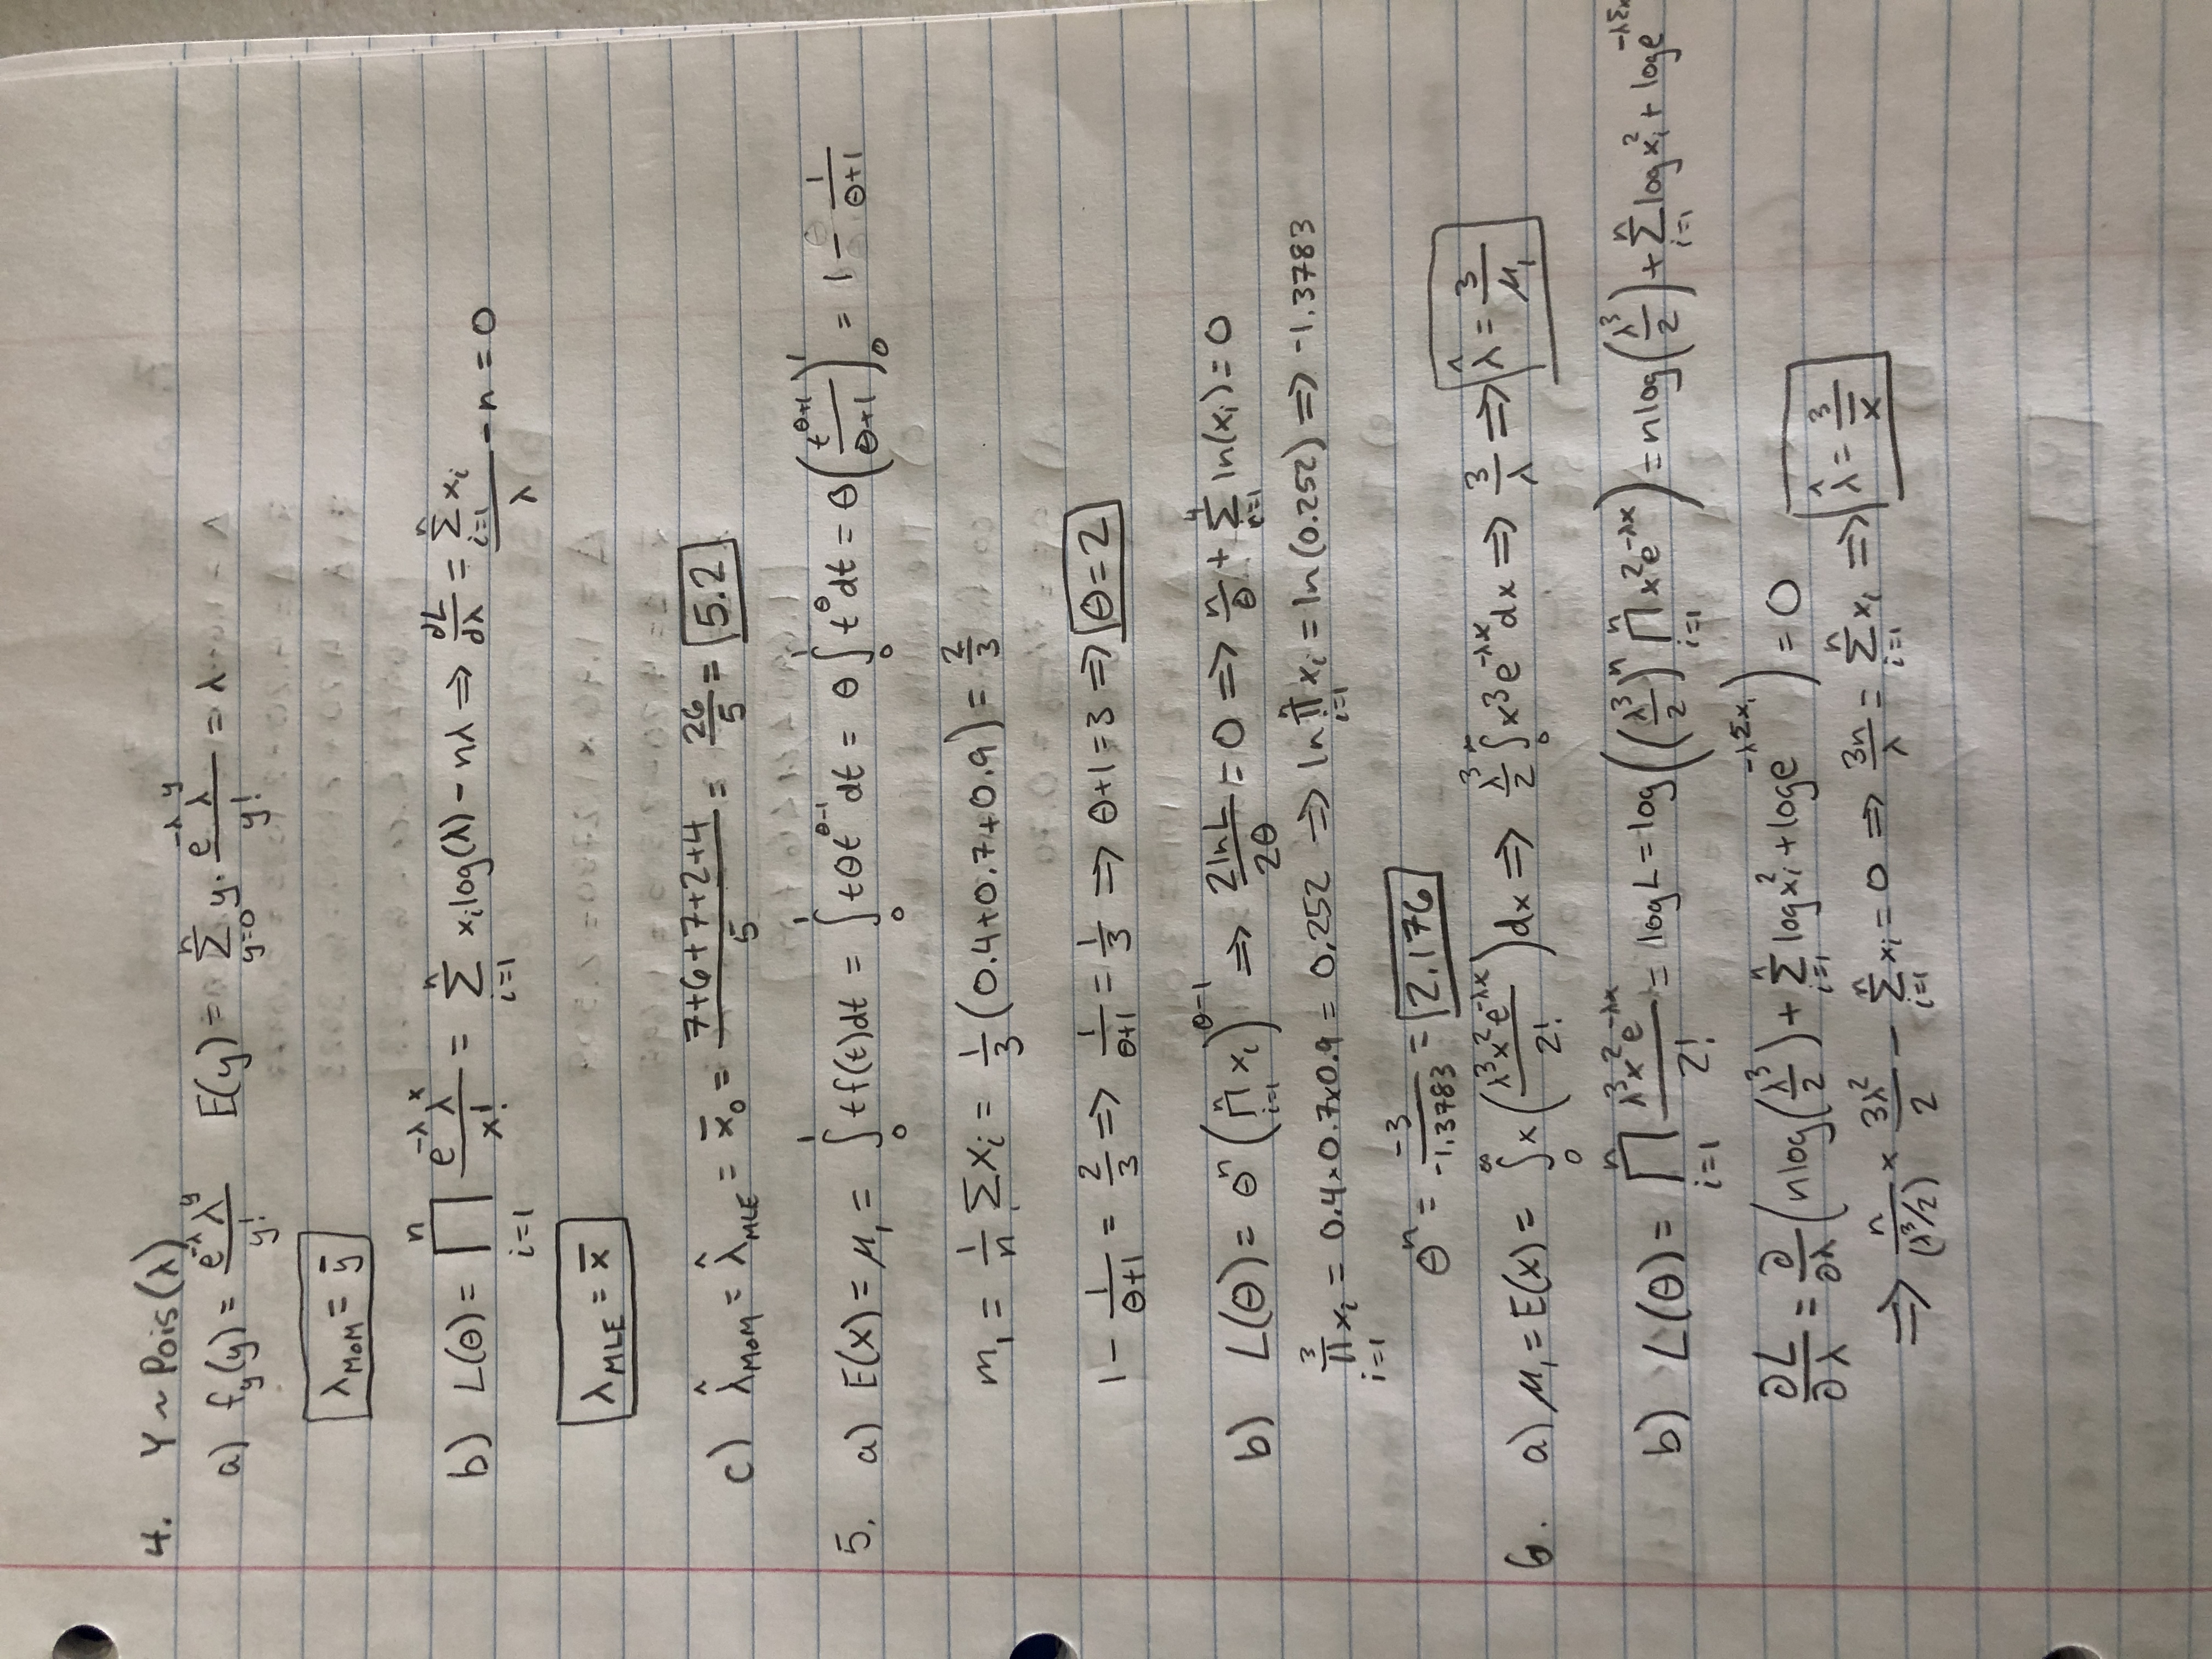 4. Y ~ Pois(λ)
a) f_y(y) = e^{-λ} λ^y / y!   E(y) = Σ_{y=0}^{n} y · e^{-λ} λ^y / y! = λ
λ_{MOM} = ȳ
b) L(θ) = ∏_{i=1}^{n} e^{-λ} λ^x / x! = Σ_{i=1}^{n} x_i log(λ) - nλ ⇒ ∂L/∂λ = Σ_{i=1}^{n} x_i / λ - n = 0
λ_{MLE} = x̄
c) λ̂_{MOM} = λ̂_{MLE} = x̄_0 = (7+6+7+2+4)/5 = 26/5 = 5.2
5. a) E(X) = μ_1 = ∫_0^1 t f(t) dt = ∫_0^1 t θ t^{θ-1} dt = θ ∫_0^1 t^θ dt = θ (t^{θ+1} / (θ+1))_0^1 = 1 - 1/(θ+1)
m_1 = 1/n Σ X_i = 1/3 (0.4+0.7+0.9) = 2/3
1 - 1/(θ+1) = 2/3 ⇒ 1/(θ+1) = 1/3 ⇒ θ+1 = 3 ⇒ θ = 2
b) L(θ) = θ^n (∏_{i=1}^{n} x_i)^{θ-1} ⇒ 2lnL / 2θ = 0 ⇒ n/θ + Σ_{i=1}^{4} ln(x_i) = 0
∏_{i=1}^{3} x_i = 0.4×0.7×0.9 = 0.252 ⇒ ln ∏_{i=1}^{n} x_i = ln(0.252) ⇒ -1.3783
θ^n = -3 / -1.3783 = 2.176
6. a) μ_1 = E(X) = ∫_0^∞ x (λ^3 x^2 e^{-λx} / 2!) dx ⇒ λ^3/2 ∫_0^∞ x^3 e^{-λx} dx ⇒ 3/λ ⇒ λ̂ = 3/μ_1
b) L(θ) = ∏_{i=1}^{n} λ^3 x^2 e^{-λx} / 2! = log L = log((λ^3/2)^n ∏_{i=1}^{n} x^2 e^{-λx}) = n log(λ^3/2) + Σ_{i=1}^{n} log x_i^2 + log e^{-λΣx
∂L/∂λ = ∂/∂λ (n log(λ^3/2) + Σ_{i=1}^{n} log x_i^2 + log e^{-λΣx_i}) = 0
⇒ n/(λ^3/2) × 3λ^2/2 - Σ_{i=1}^{n} x_i = 0 ⇒ 3n/λ = Σ_{i=1}^{n} x_i ⇒ λ̂ = 3/x̄